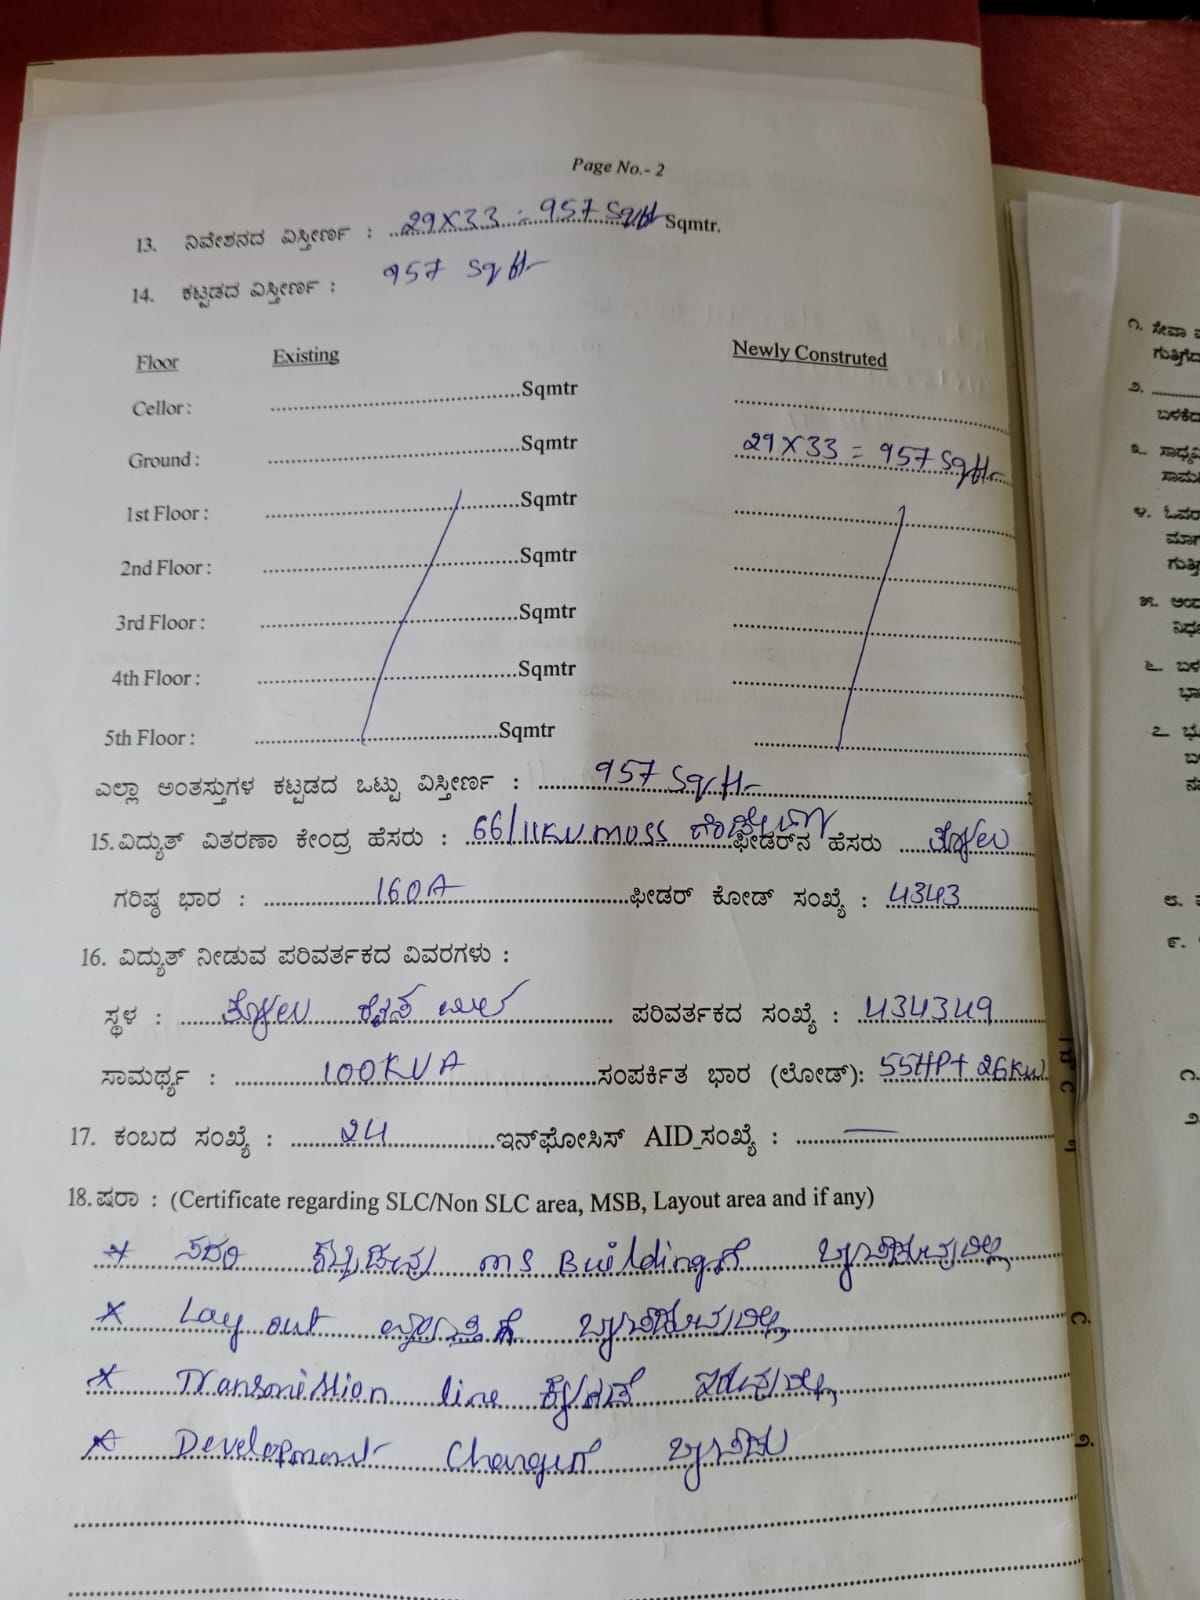 Page No.- 2
13. ನಿವೇಶನದ ವಿಸ್ತೀರ್ಣ : 29X33 = 957 Sqft Sqmtr.
14. ಕಟ್ಟಡದ ವಿಸ್ತೀರ್ಣ : 957 Sqft
Floor Existing Newly Construted
Cellor : Sqmtr
Ground : Sqmtr 29X33 = 957 Sqft
1st Floor : Sqmtr
2nd Floor : Sqmtr
3rd Floor : Sqmtr
4th Floor : Sqmtr
5th Floor : Sqmtr
ಎಲ್ಲಾ ಅಂತಸ್ತುಗಳ ಕಟ್ಟಡದ ಒಟ್ಟು ವಿಸ್ತೀರ್ಣ : 957 Sqft
15. ವಿದ್ಯುತ್ ವಿತರಣಾ ಕೇಂದ್ರ ಹೆಸರು : 66/11KV MUSS ಫೀಡರ್‌ನ ಹೆಸರು
ಗರಿಷ್ಠ ಭಾರ : 160A ಫೀಡರ್ ಕೋಡ್ ಸಂಖ್ಯೆ : 4343
16. ವಿದ್ಯುತ್ ನೀಡುವ ಪರಿವರ್ತಕದ ವಿವರಗಳು :
ಸ್ಥಳ : ಪರಿವರ್ತಕದ ಸಂಖ್ಯೆ : 434349
ಸಾಮರ್ಥ್ಯ : 100KVA ಸಂಪರ್ಕಿತ ಭಾರ (ಲೋಡ್): 55HP+26KW
17. ಕಂಬದ ಸಂಖ್ಯೆ : 24 ಇನ್‌ಫೋಸಿಸ್ AID_ಸಂಖ್ಯೆ : —
18. ಷರಾ : (Certificate regarding SLC/Non SLC area, MSB, Layout area and if any)
* ಸದರಿ ಕಟ್ಟಡವು MS Buildingಗೆ ಒಳಪಡುವುದಿಲ್ಲ
* Lay out ವ್ಯಾಪ್ತಿಗೆ ಒಳಪಡುವುದಿಲ್ಲ
* Transmission line ಕೆಳಗಡೆ ಇರುವುದಿಲ್ಲ
* Development Chargeಗೆ
೧. ಸೇವಾ
೨.
೩. ಸಾಧ್ಯ
೪. ಓವರ
೮.
೯.
೧.
೨.